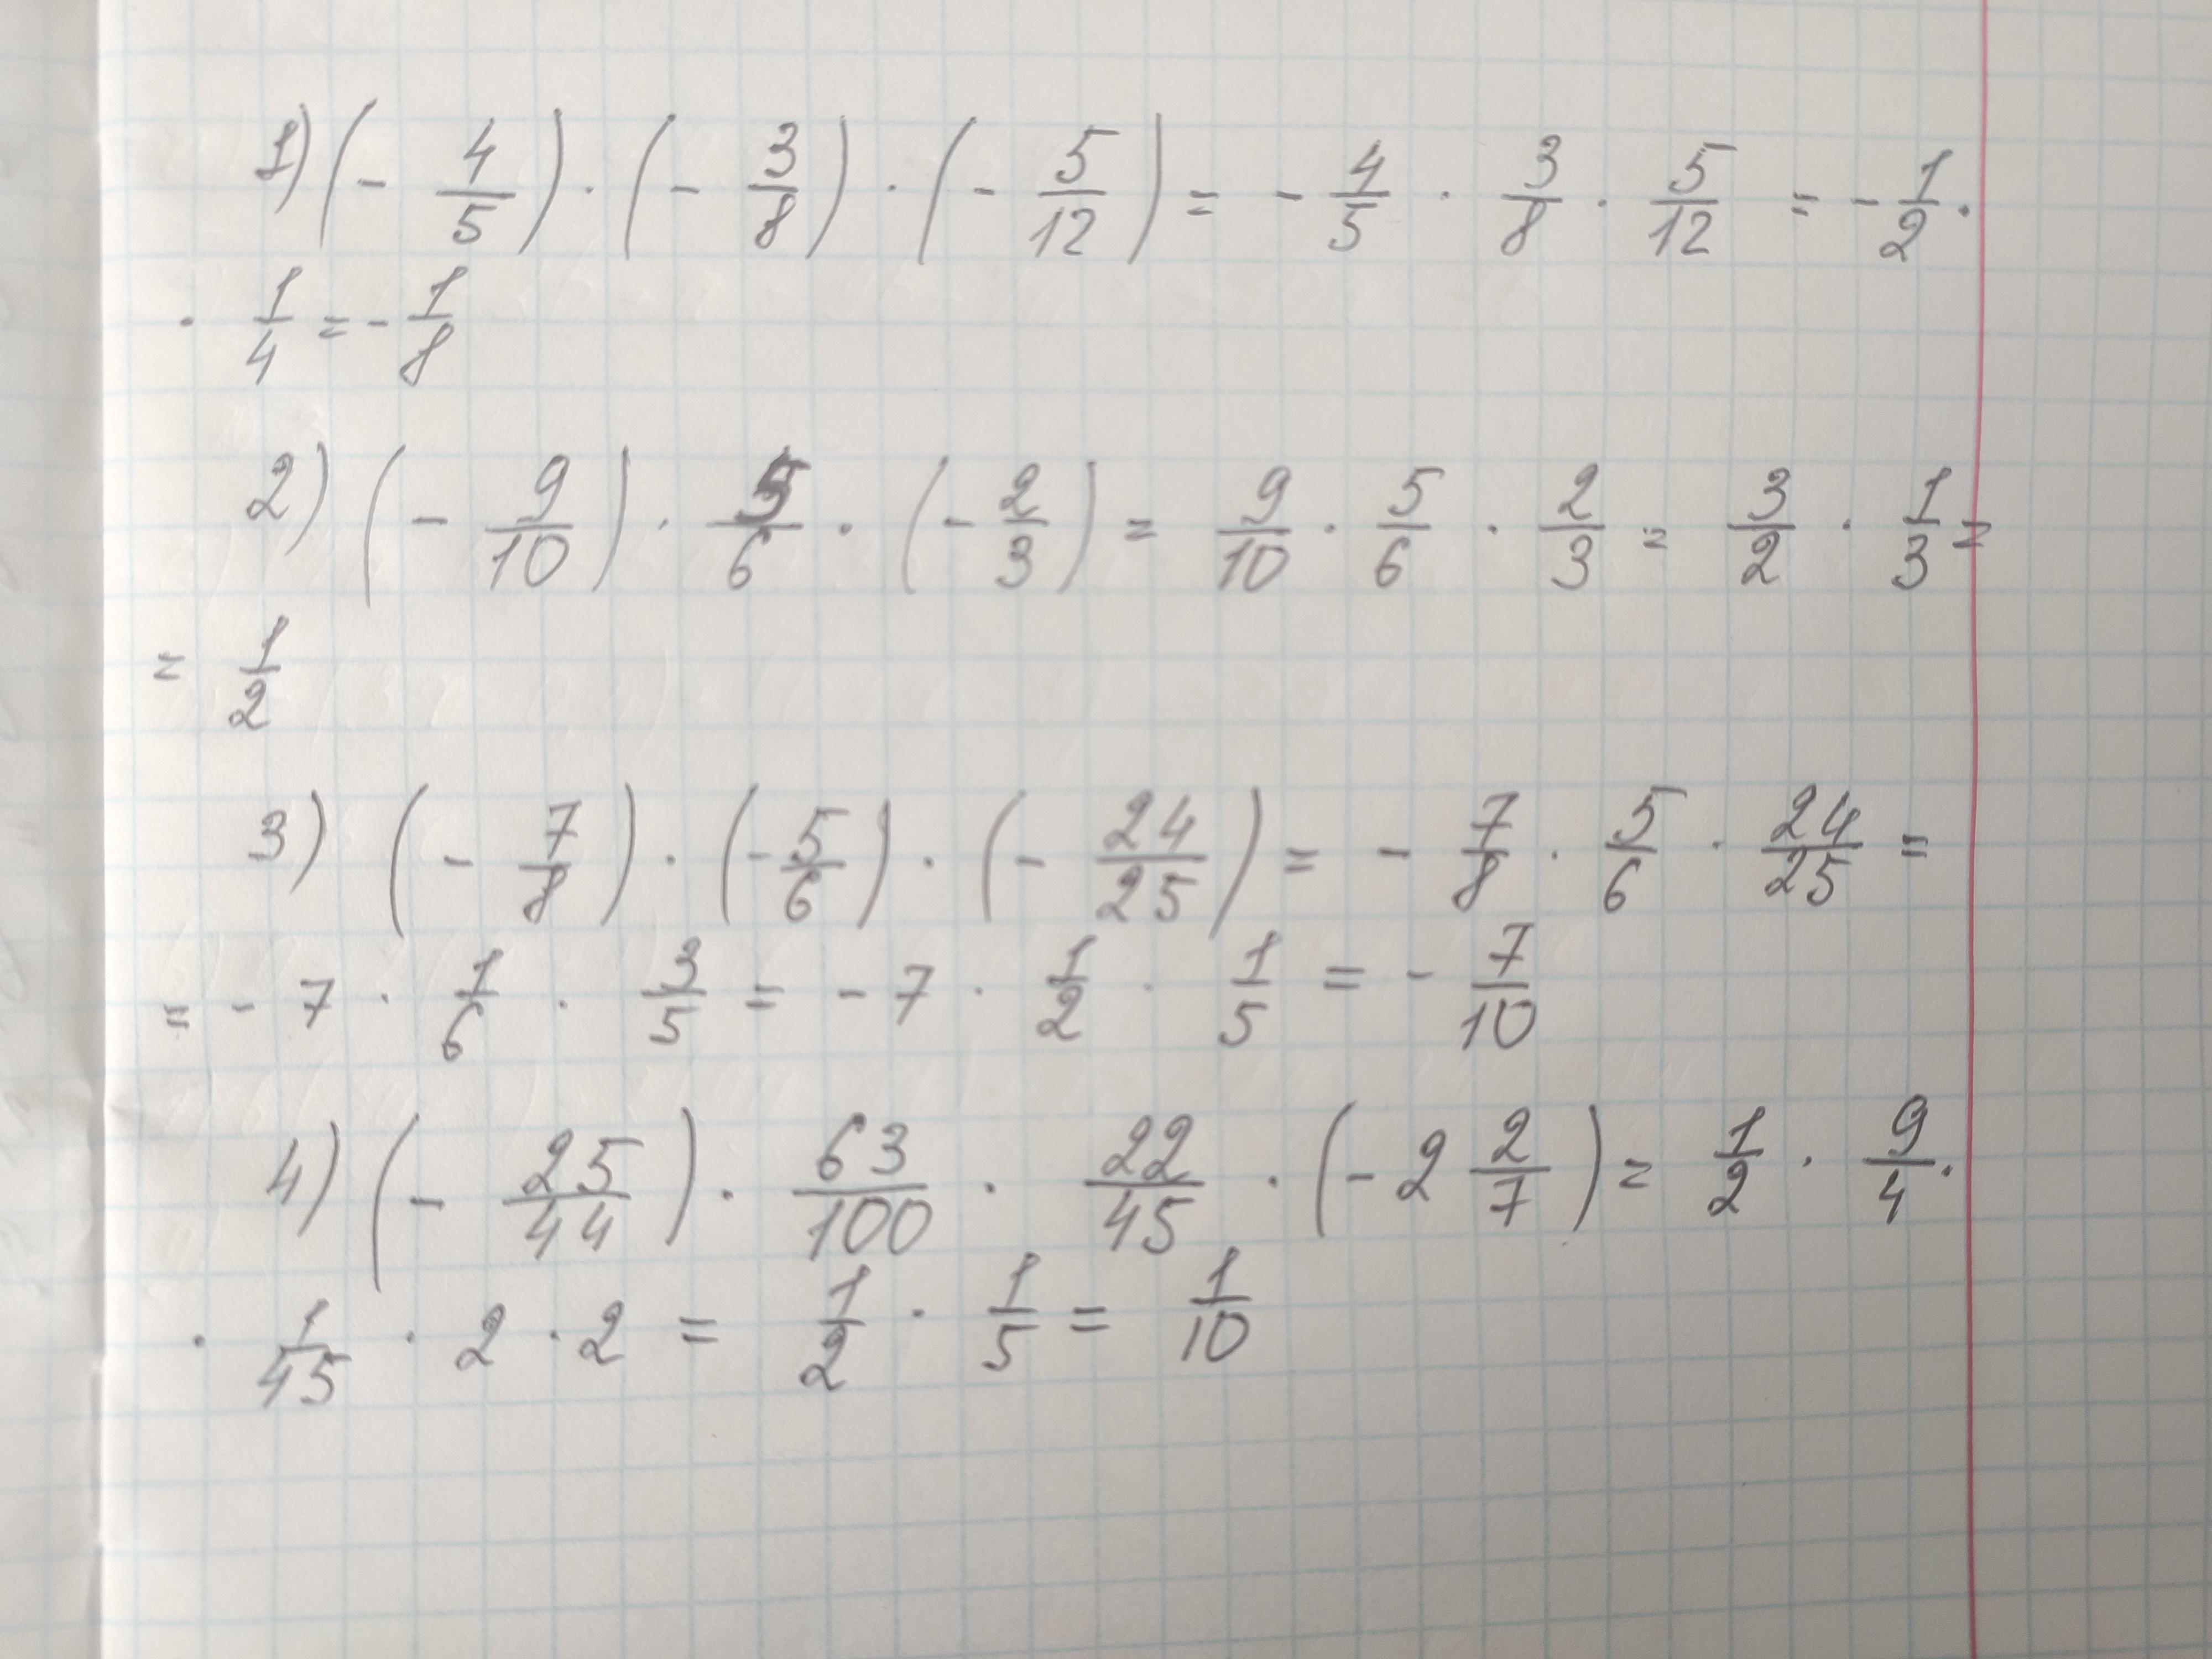 1) (- 4/5) · (- 3/8) · (- 5/12) = - 4/5 · 3/8 · 5/12 = - 1/2 ·
· 1/4 = - 1/8
2) (- 9/10) · 5/6 · (- 2/3) = 9/10 · 5/6 · 2/3 = 3/2 · 1/3 =
= 1/2
3) (- 7/8) · (- 5/6) · (- 24/25) = - 7/8 · 5/6 · 24/25 =
= - 7 · 1/6 · 3/5 = - 7 · 1/2 · 1/5 = - 7/10
4) (- 25/44) · 63/100 · 22/45 · (- 2 2/7) = 1/2 · 9/4 ·
· 1/45 · 2 · 2 = 1/2 · 1/5 = 1/10